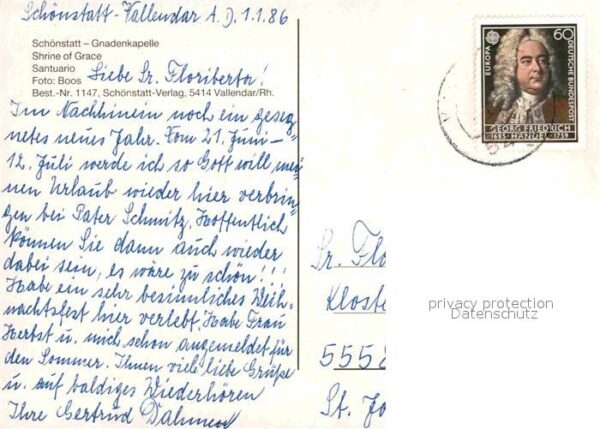 Schönstatt-Vallendar A. D. 1.1.86
Schönstatt – Gnadenkapelle
Shrine of Grace
Santuario
Foto: Boos
Best.-Nr. 1147, Schönstatt-Verlag, 5414 Vallendar/Rh.
Liebe Sr. Floriberta!
Im Nachhinein noch ein geseg=
netes neues Jahr. Vom 21. Juni –
12. Juli werde ich so Gott will, mei=
nen Urlaub wieder hier verbrin=
gen bei Pater Schmitz. Hoffentlich
können Sie dann auch wieder
dabei sein, es wäre zu schön!!!
Habe ein sehr besinnliches Weih=
nachtsfest hier verlebt. Habe Frau
Herbst u. mich schon angemeldet für
den Sommer. Ihnen viele liebe Grüße
u. auf baldiges Wiederhören
Ihre Gertrud Dahmen
EUROPA
60
DEUTSCHE BUNDESPOST
GEORG FRIEDRICH
1685 HÄNDEL 1759
Sr. Flo
Kloste
5558
St. Jo
privacy protection
Datenschutz